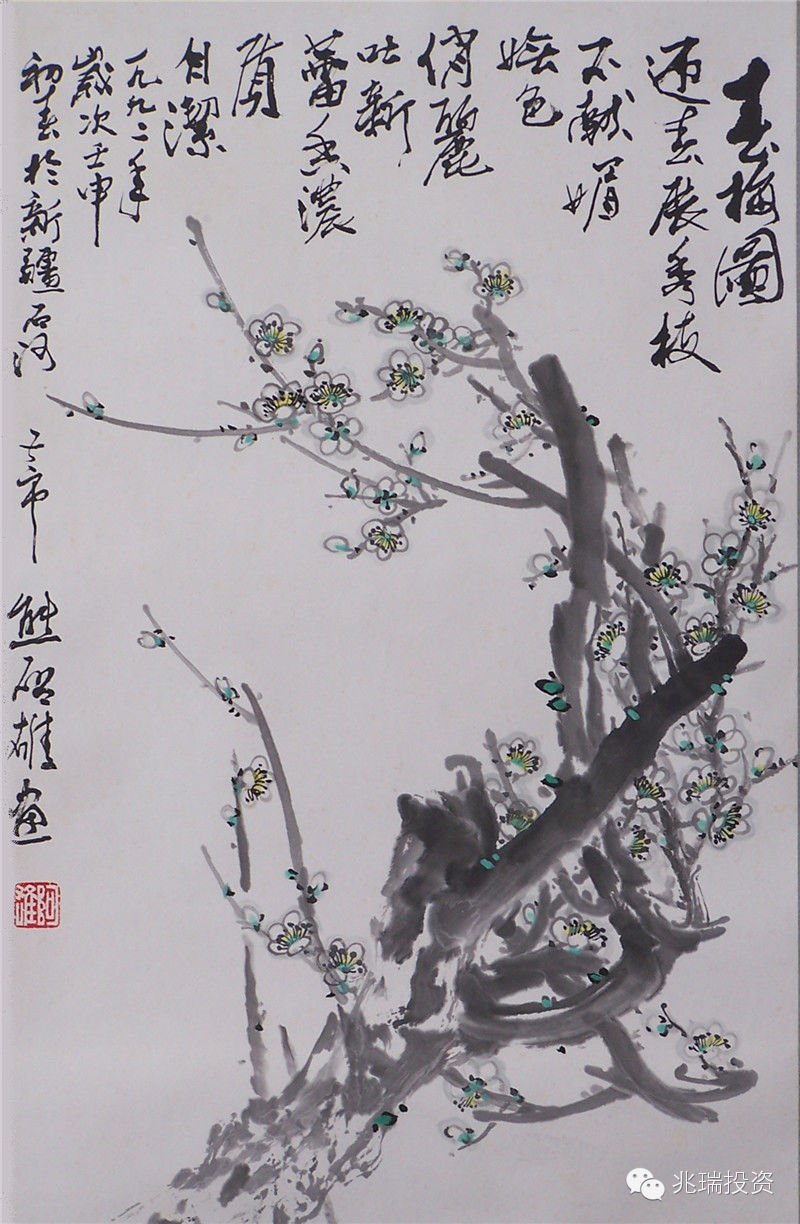 春梅圖
迎春展秀枝
不献媚
色
俏麗
吐新
蕾香濃
質
自潔
一九九二年
歲次壬申
初春於新疆石河
子市
熊启雄画
兆瑞投资